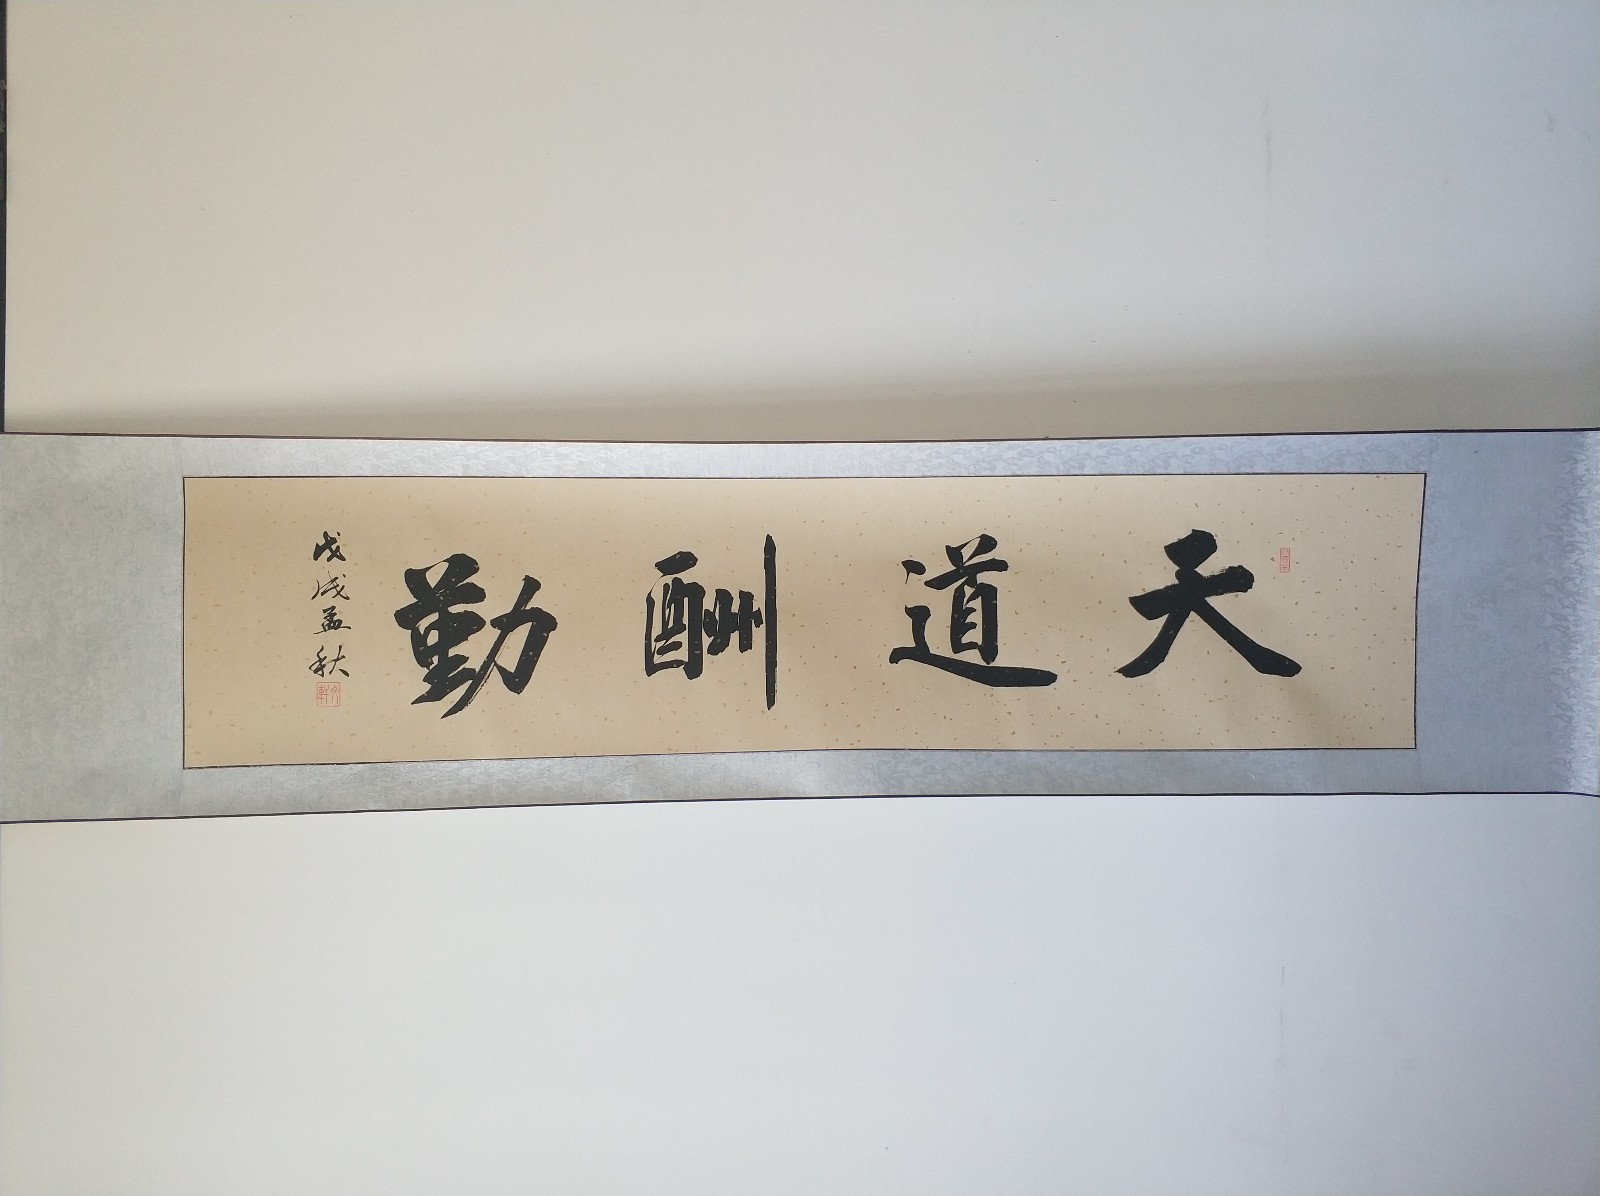 天道酬勤
戊戌孟秋